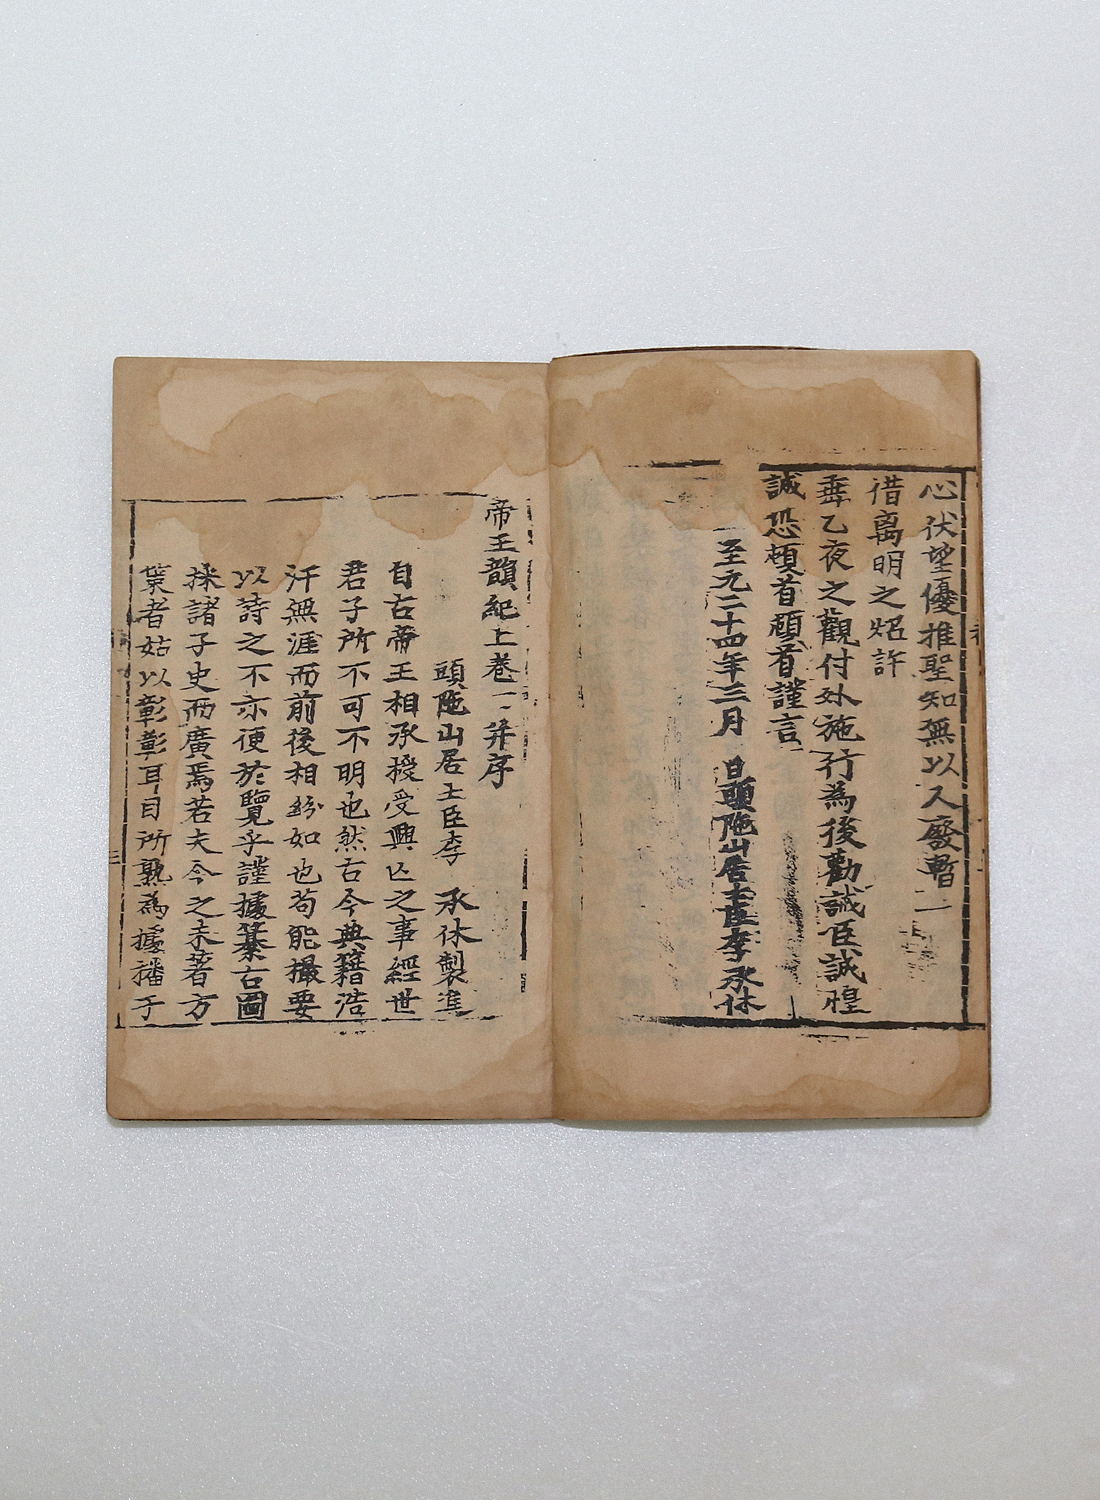 心伏望優推聖知無以人廢暫
借离明之炤許
垂乙夜之觀付外施行為後勸誡臣誠惶
誠恐頓首頓首謹言
至元二十四年三月 日頭陁山居士臣李承休
帝王韻紀上卷 并序
頭陁山居士臣李 承休製進
自古帝王相承授受興亡之事經世
君子所不可不明也然古今典籍浩
汗無涯而前後相紛如也苟能撮要
以詩之不亦便於覽乎謹據纂古圖
採諸子史而廣焉若夫今之未著方
葉者姑以彰彰耳目所熟為據播于